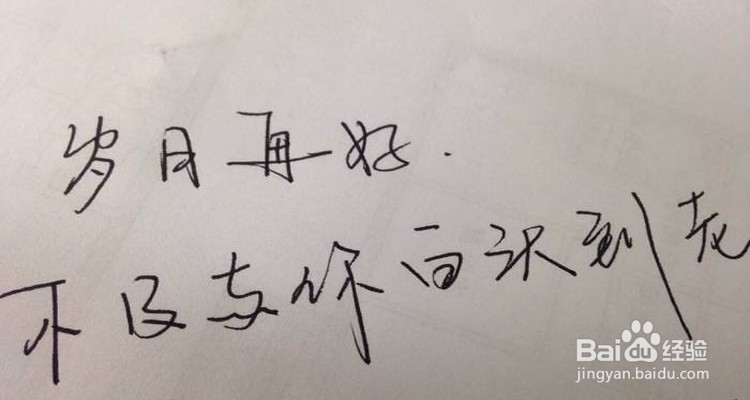 岁月再好.
不及与你百识到老
Baidu经验
jingyan.baidu.com